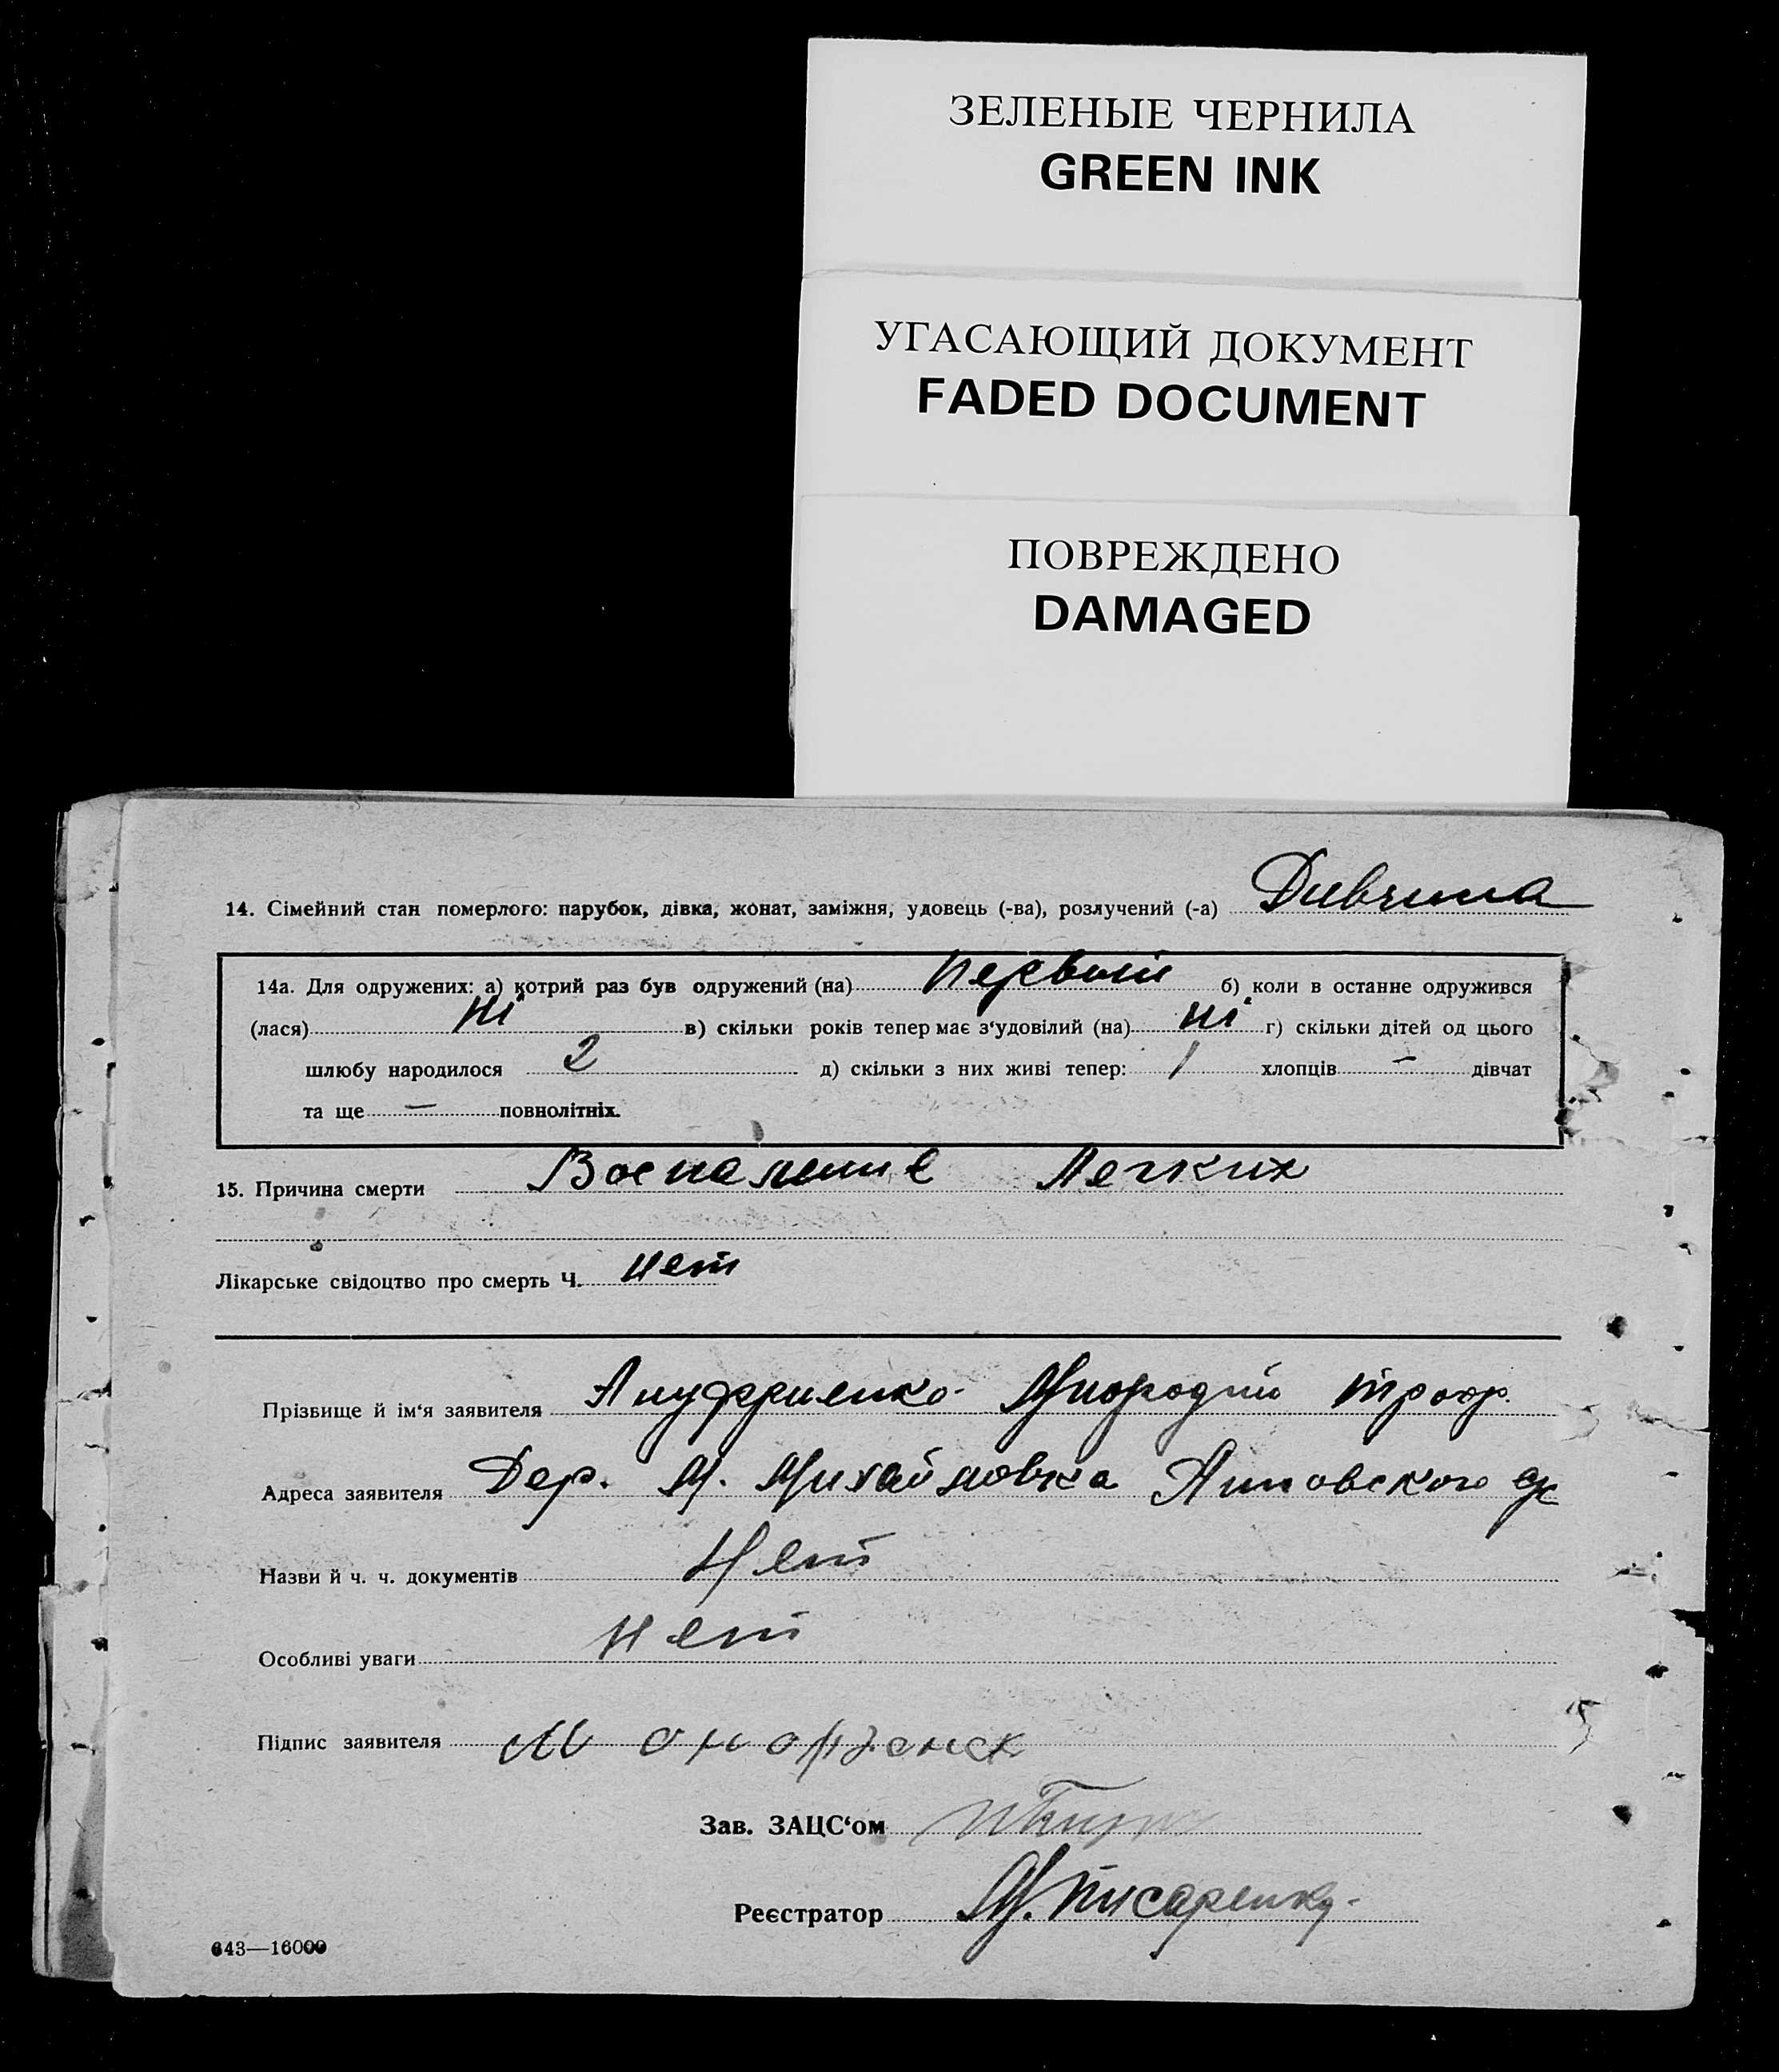 ЗЕЛЕНЫЕ ЧЕРНИЛА
GREEN INK
УГАСАЮЩИЙ ДОКУМЕНТ
FADED DOCUMENT
ПОВРЕЖДЕНО
DAMAGED
14. Сімейний стан померлого: парубок, дівка, жонат, заміжня, удовець (-ва), розлучений (-а) Дивчина
14а. Для одружених: а) котрий раз був одружений (на) первый б) коли в останне одружився
(лася) ні в) скільки років тепер має з‘удовілий (на) ні г) скільки дітей од цього
шлюбу народилося 2 д) скільки з них живі тепер: 1 хлопців — дівчат
та ще — повнолітніх.
15. Причина смерти Воспаление Легких
Лікарське свідоцтво про смерть Ч. нет
Прізвище й ім‘я заявителя Ануфриенко троф.
Адреса заявителя Дер. М. Михайловка
Назви й ч. ч. документів Нет
Особливі уваги Нет
Підпис заявителя М
Зав. ЗАЦС‘ом
Реєстратор М. Писаренко
643—16000